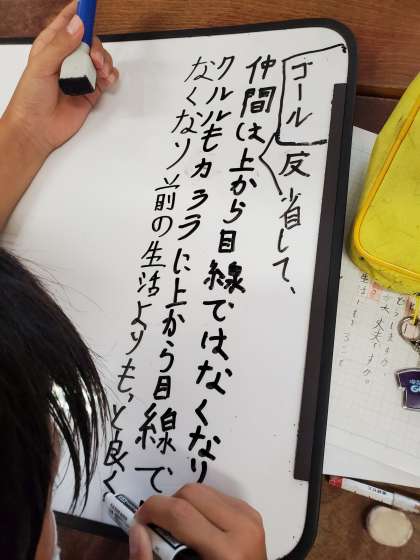 ゴール
反省して、
仲間は上から目線ではなくなり
クルルもカララに上から目線で
なくなり前の生活よりもっと良く